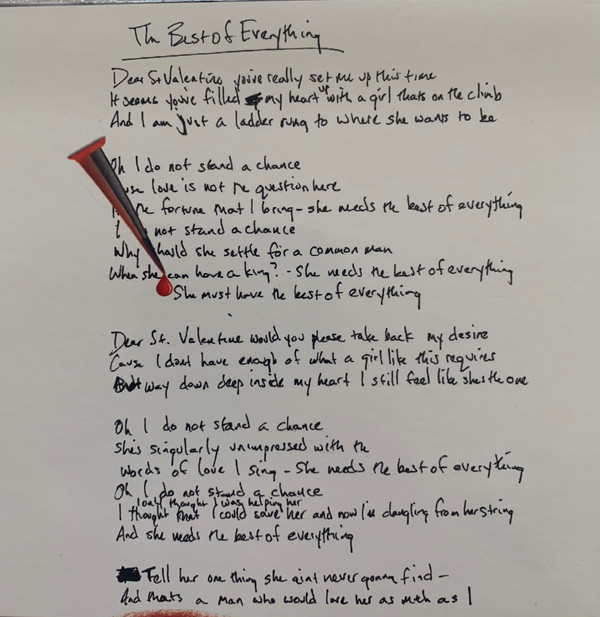 The Best of Everything
Dear St Valentine you've really set me up this time
It seems you've filled my heart up with a girl thats on the climb
And I am just a ladder rung to where she wants to be
Oh I do not stand a chance
love is not the question here
the fortune that I bring - she needs the best of everything
I not stand a chance
Why should she settle for a common man
When she can have a king? - She needs the best of everything
She must have the best of everything
Dear St. Valentine would you please take back my desire
Cause I dont have enough of what a girl like this requires
way down deep inside my heart I still feel like shes the one
Oh I do not stand a chance
She's singularly unimpressed with the
words of love I sing - She needs the best of everything
Oh I do not stand a chance
I only thought I was helping her
I thought that I could save her and now I'm dangling from her string
And she needs the best of everything
Tell her one thing she aint never gonna find -
And thats a man who would love her as much as I